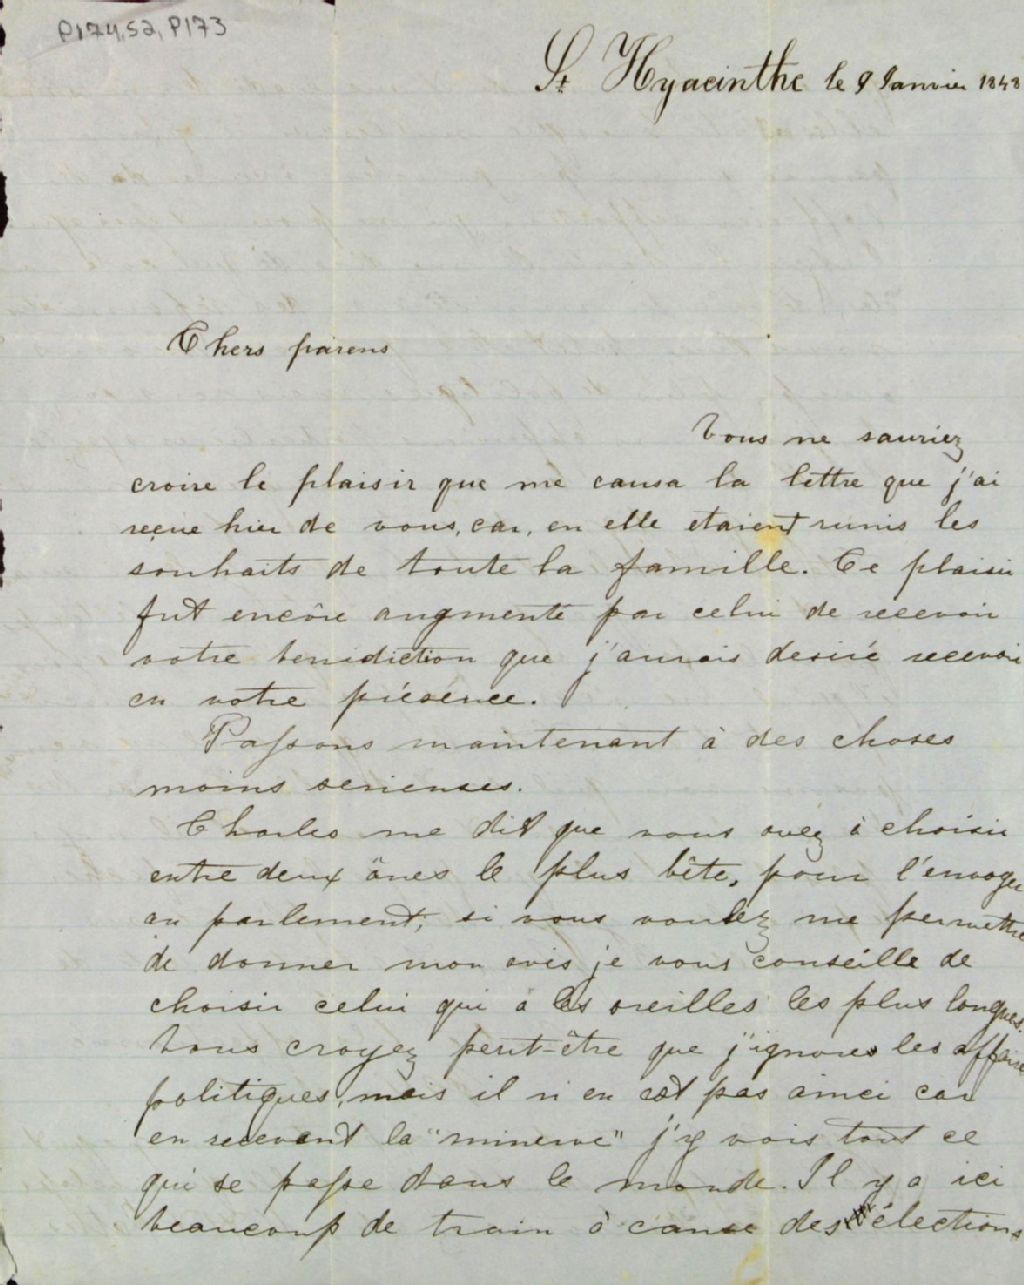 P174,S2,P173
St Hyacinthe le 9 Janvier 1848
Chers parens
Vous ne sauriez
croire le plaisir que me causa la lettre que j'ai
reçue hier de vous, car, en elle etaient runis les
souhaits de toute la famille. Ce plaisir
fut encôre augmenté par celui de recevoir
votre benediction que j'aurais desiré recevoir
en votre présence.
Passons maintenant à des choses
moins serieuses.
Charles me dit que vous avez à choisir
entre deux ânes le plus bête, pour l'envoyer
au parlement, si vous voulez me permettre
de donner mon avis je vous conseille de
choisir celui qui a les oreilles les plus longues.
Vous croyez peut-être que j'ignore les affaires
politiques, mais il n'en est pas ainci car
en recevant la "minerve" j'y vois tout ce
qui se passe dans le monde. Il y a ici
beaucoup de train à cause des élections